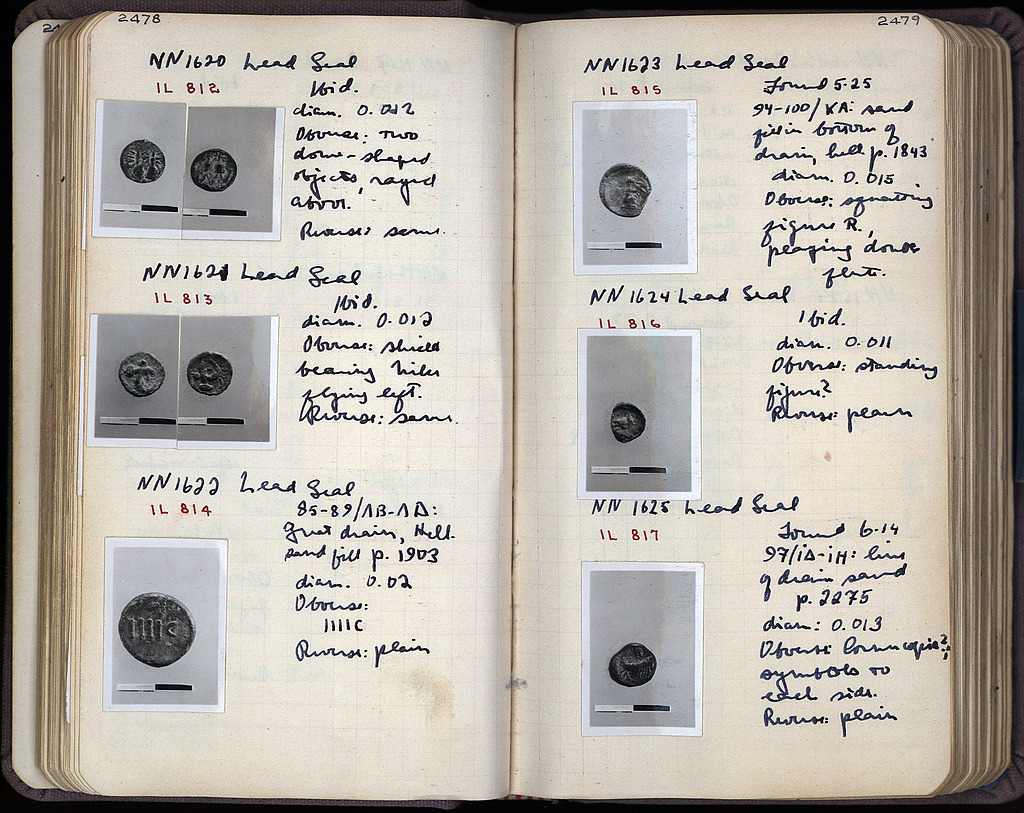 2478
NN1620 Lead Seal
IL 812
Ibid.
diam. 0.012
Obverse: two
dome-shaped
objects, rayed
above.
Reverse: same.
NN1621 Lead Seal
IL 813
Ibid.
diam. 0.012
Obverse: shield
bearing
flying left.
Reverse: same.
NN1622 Lead Seal
IL 814
85-89/ΛB-ΛΔ:
Great drain, Hell.
sand fill p. 1903
diam. 0.02
Obverse:
IIIIC
Reverse: plain
2479
NN1623 Lead Seal
IL 815
Found 5-25
94-100/KA: sand
fill in bottom of
drain, hell p. 1843
diam. 0.015
Obverse: squatting
figure R.,
playing double
flute.
NN1624 Lead Seal
IL 816
Ibid.
diam. 0.011
Obverse: standing
figure?
Reverse: plain
NN 1625 Lead Seal
IL 817
Found 6-14
97/ΙΔ-ΙΗ:
of drain sand
p. 2275
diam: 0.013
Obverse: Cornucopia?;
symbols to
each side.
Reverse: plain